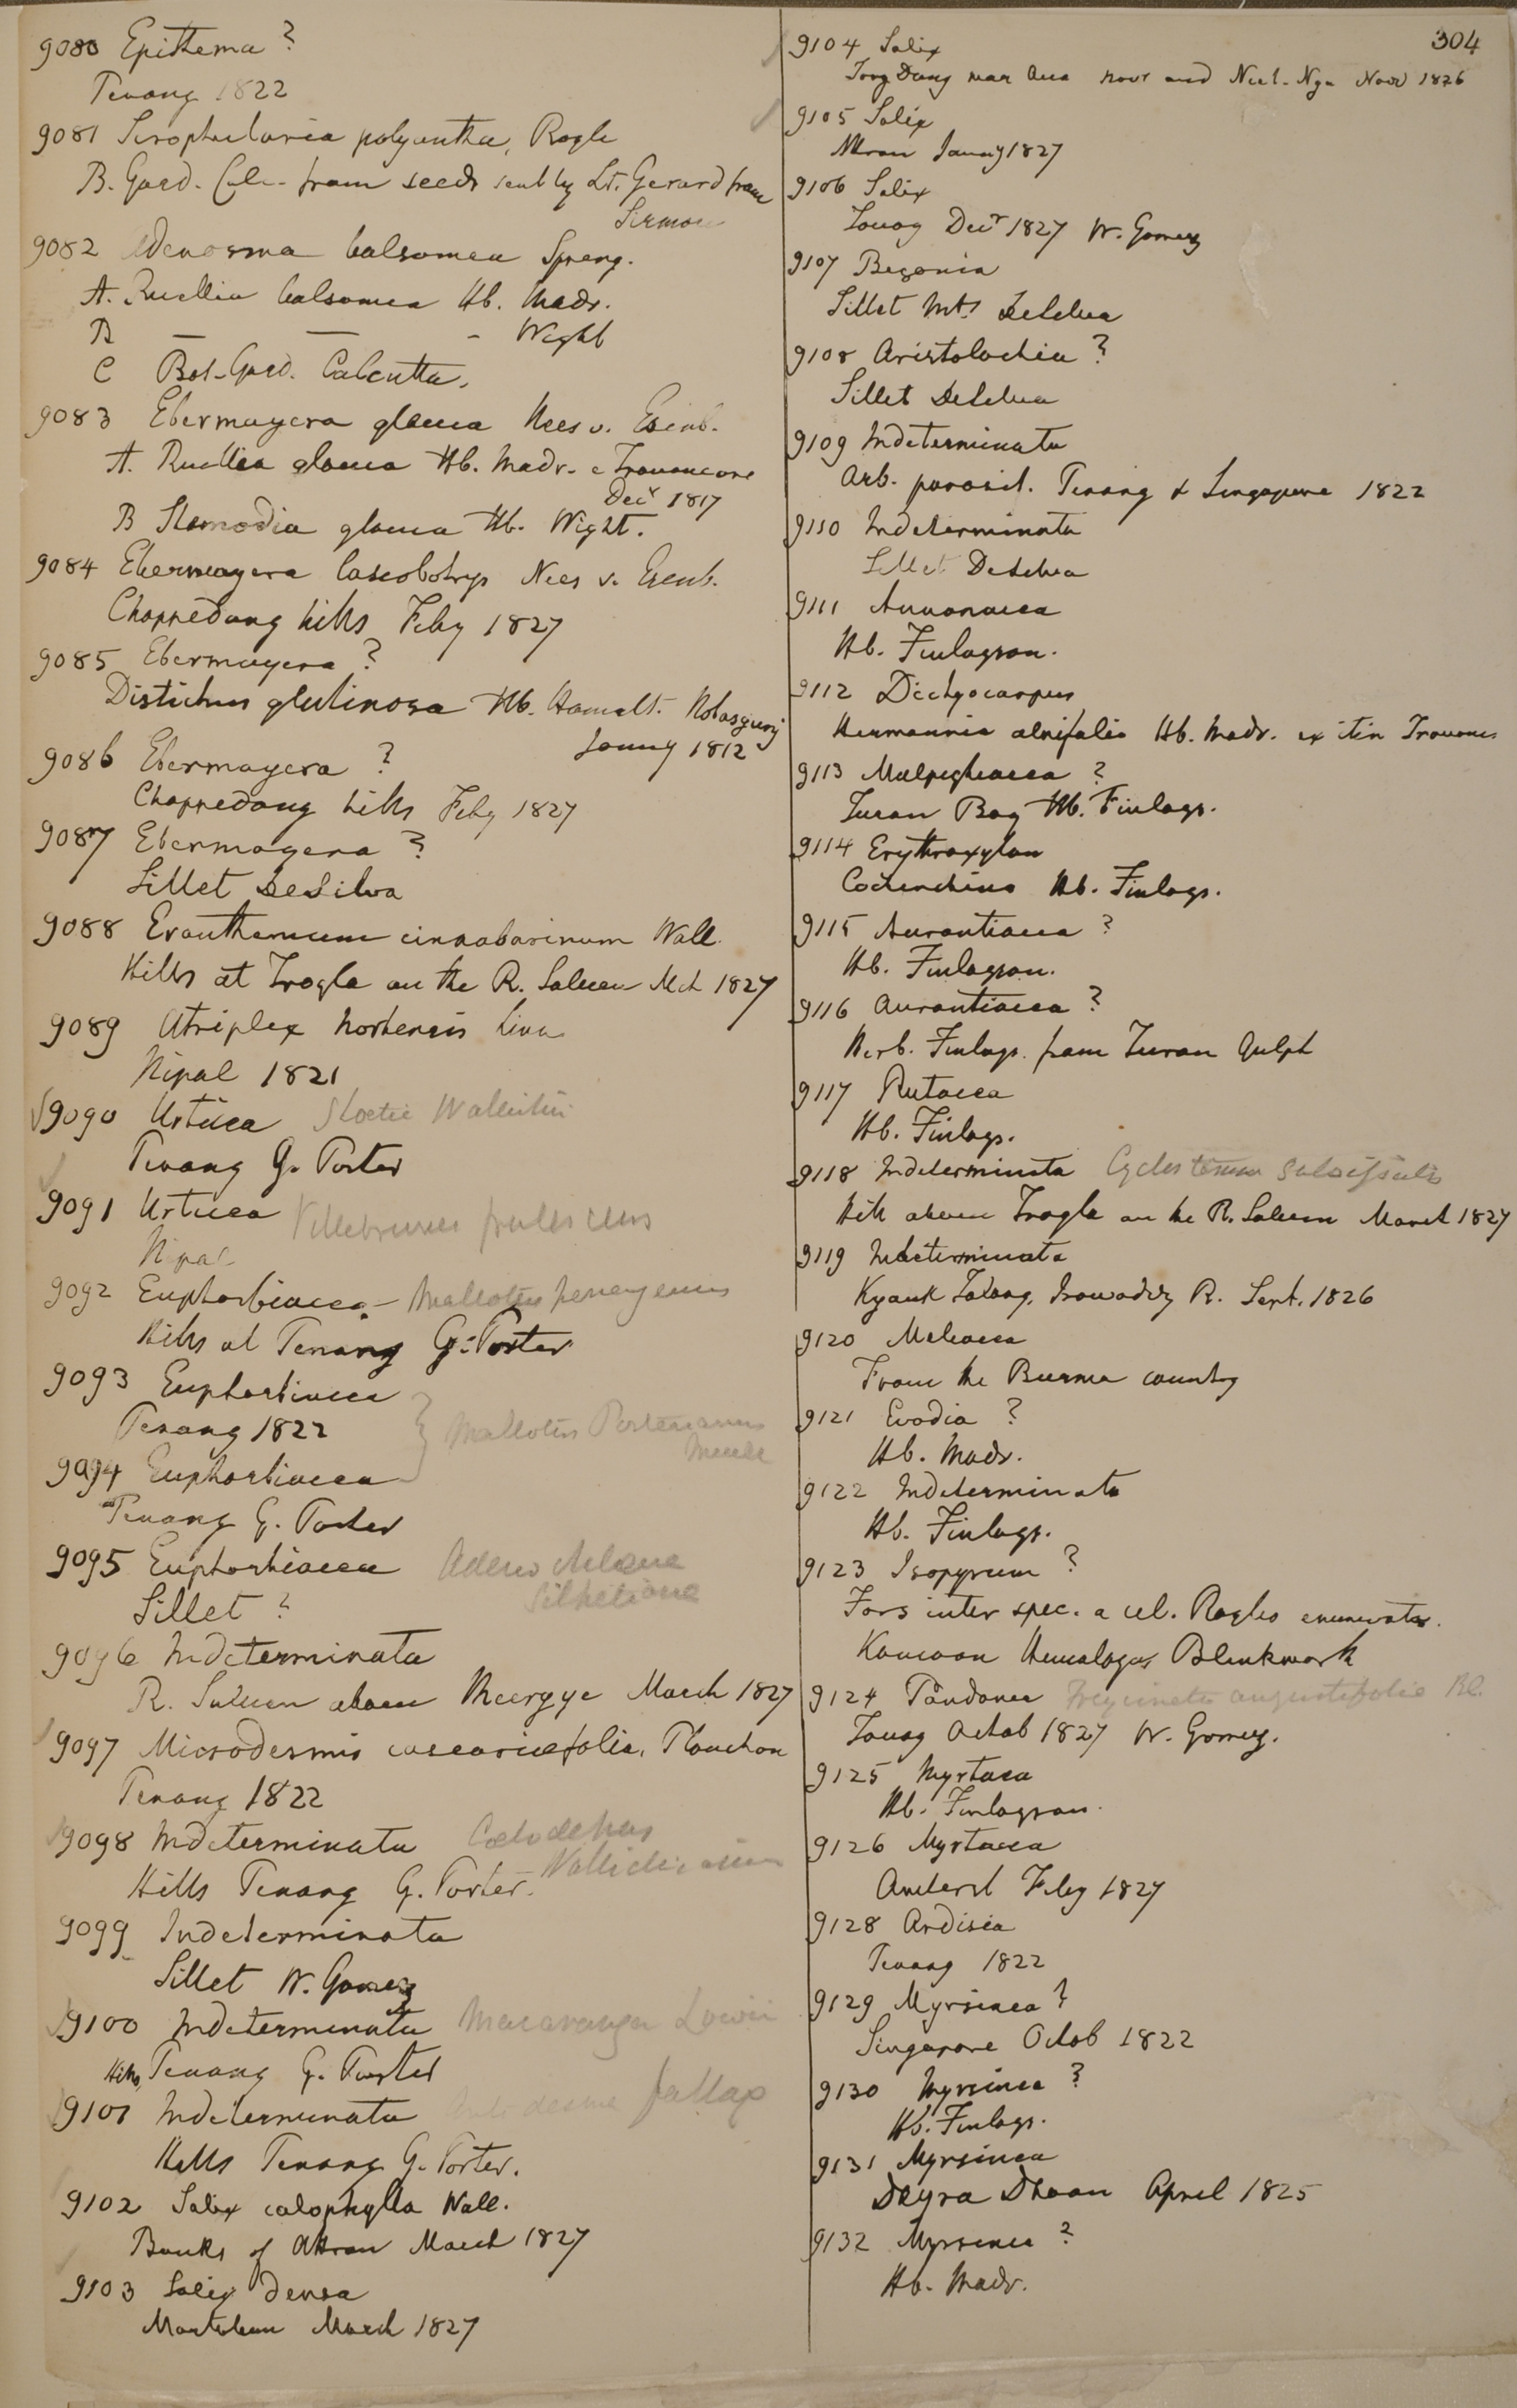 9080 Epithema ?
Penang 1822
9081 Scrophularia polyantha, Royle
B. Gard. Calc. from seeds sent by Lt. Gerard from
Sirmou
9082 Adenosma balsamea Spreng.
A. Ruellia balsamea Hb. Madr.
B — — - Wight
C Bot. Gard. Calcutta.
9083 Ebermayera glauca Nees v. Esenb.
A. Ruellia glauca Hb. Madr. e Travancore
Decr 1817
B Stemodia glauca Hb. Wight.
9084 Ebermayera lasiobotrys Nees v. Esenb.
Choppedong hills Feby 1827
9085 Ebermayera ?
Distichus glutinosa Hb. Hamilt.
Janny 1812
9086 Ebermayera ?
Choppedong hills Feby 1827
9087 Ebermayera ?
Sillet DeSilva
9088 Eranthemum cinnabarinum Wall.
Hills at Trogla on the R. Saluen Mch 1827
9089 Atriplex hortensis Linn
Nipal 1821
9090 Urticea Sloetia Wallichii
Penang G. Porter
9091 Urticea Villebrunea frutescens
Nipal
9092 Euphorbiacea - Mallotus penangensis
Hills at Penang G. Porter
9093 Euphorbiacea
Penang 1822
Mallotus Porterianus
Muell
9094 Euphorbiacea
Penang G. Porter
9095 Euphorbiacea Adenochlaena
Silhetiana
Sillet ?
9096 Indeterminata
R. Saluen above Meergye March 1827
9097 Microdesmis caseariaefolia, Planchon
Penang 1822
9098 Indeterminata Coelodepas
Wallichianum
Hills Penang G. Porter.
9099 Indeterminata
Sillet W. Gomez
9100 Indeterminata Macaranga Lowii
Hills, Penang G. Porter
9101 Indeterminata Antidesma fallax
Hills Penang G. Porter.
9102 Salix calophylla Wall.
Banks of Attran March 1827
9103 Salix densa
Martaban March 1827
304
9104 Salix
Tong Dong near Ava Novr and Neel-Nga Novr 1826
9105 Salix
Attran Janny 1827
9106 Salix
Tavoy Decr 1827 W. Gomez
9107 Begonia
Sillet Mts DeSilva
9108 Aristolochia ?
Sillet DeSilva
9109 Indeterminata
Arb. parasit. Penang & Singapore 1822
9110 Indeterminata
Sillet DeSilva
9111 Annonacea
Hb. Finlayson.
9112 Dictyocarpus
Hermannia alnifolia Hb. Madr. ex itin Travanc
9113 Malpighiacea ?
Turan Bay Hb. Finlays.
9114 Erythroxylon
Cochinchina Hb. Finlays.
9115 Aurantiacea ?
Hb. Finlayson.
9116 Aurantiacea ?
Herb. Finlays. from Turan Gulph
9117 Rutacea
Hb. Finlays.
9118 Indeterminata Cyclostemon subsessile
Hill above Trogla on the R. Saluen March 1827
9119 Indeterminata
Kyauk Talong, Irawaddy R. Sept. 1826
9120 Meliacea
From the Burma country
9121 Evodia ?
Hb. Madr.
9122 Indeterminata
Hb. Finlays.
9123 Isopyrum ?
Fors inter spec. a cel. Royleo enumeratas.
Kamaon Himalaya Blinkwork
9124 Pandanea Freycinetia angustifolia Bl.
Tavoy Octob 1827 W. Gomez.
9125 Myrtacea
Hb. Finlayson.
9126 Myrtacea
Amherst Feby 1827
9128 Ardisia
Penang 1822
9129 Myrsinea ?
Singapore Octob 1822
9130 Myrsinea ?
Hb. Finlays.
9131 Myrsinea
Deyra Dhoon April 1825
9132 Myrsinea ?
Hb. Madr.